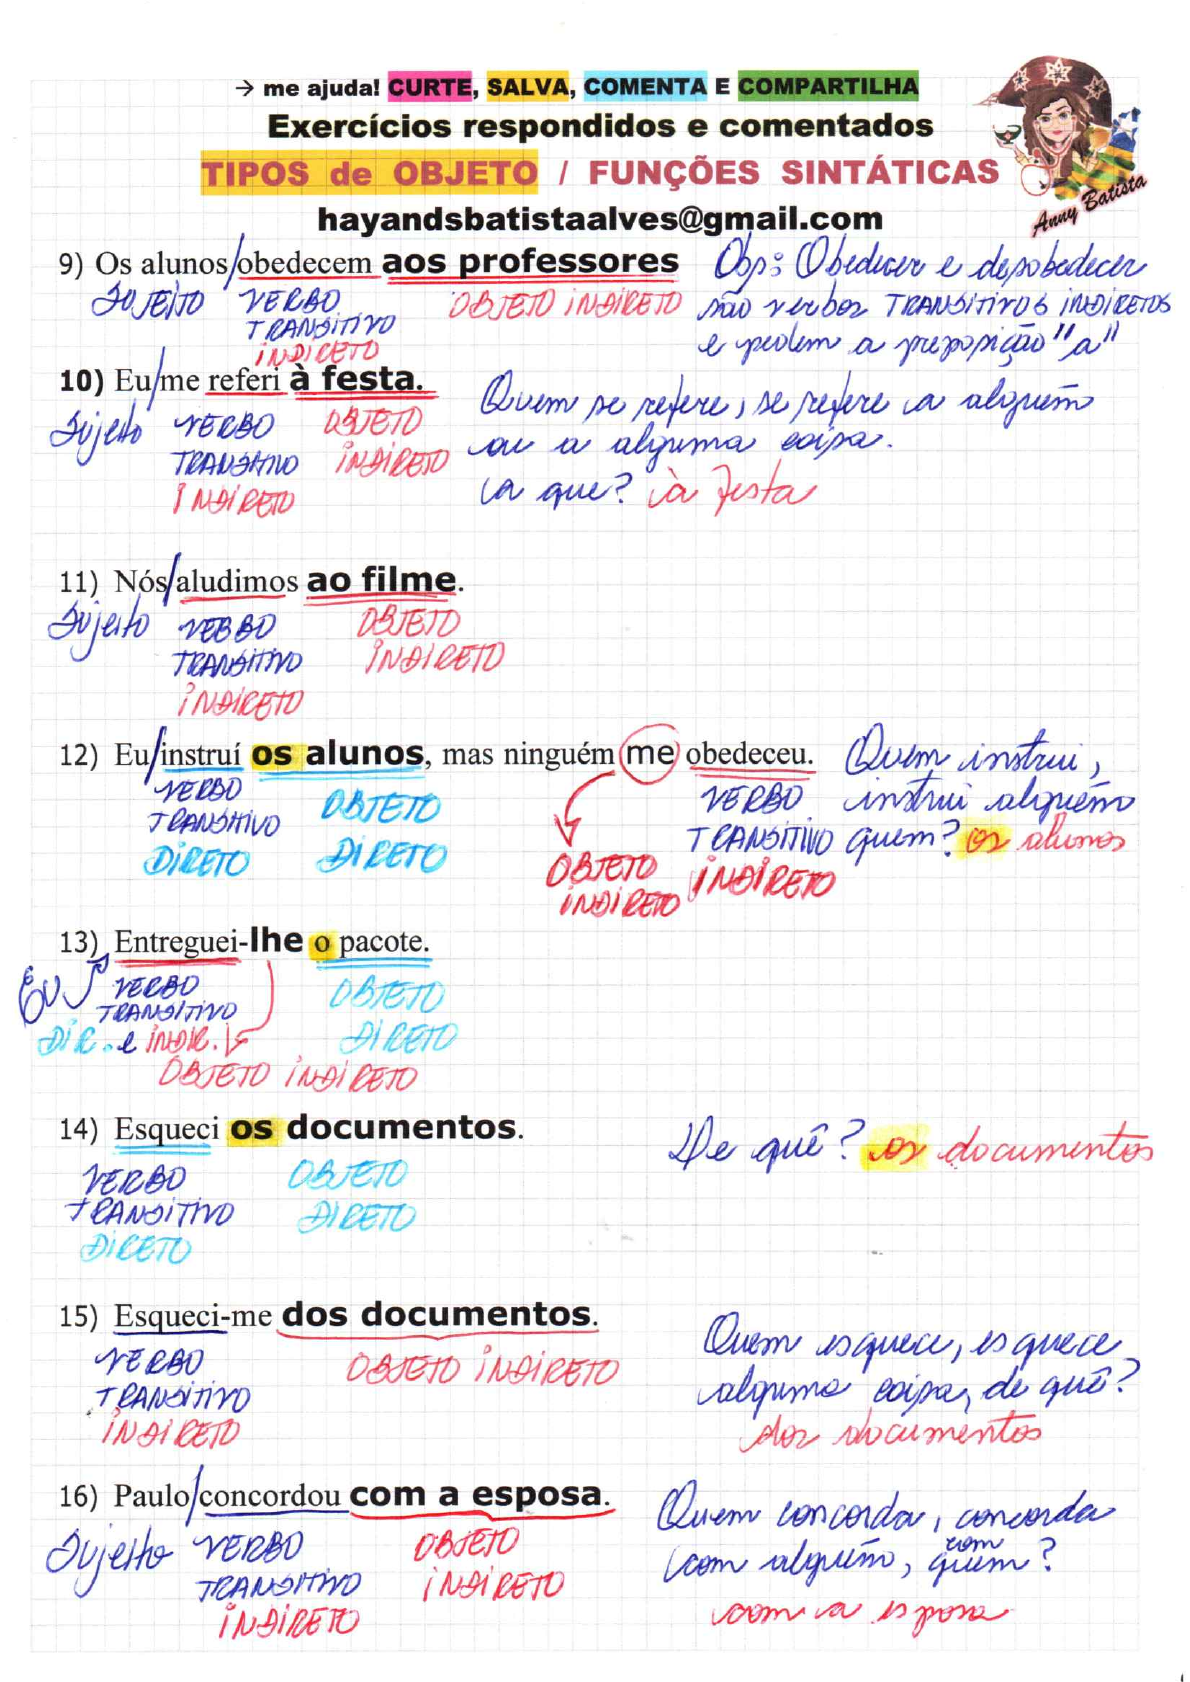 → me ajuda! CURTE, SALVA, COMENTA E COMPARTILHA
Exercícios respondidos e comentados
TIPOS de OBJETO / FUNÇÕES SINTÁTICAS
hayandsbatistaalves@gmail.com
Anny Batista
9) Os alunos/obedecem aos professores
SUJEITO VERBO TRANSITIVO INDIRETO
OBJETO INDIRETO
Obs: Obedecer e desobedecer
são verbos TRANSITIVOS INDIRETOS
e pedem a preposição "a"
10) Eu/me referi à festa.
Sujeito VERBO OBJETO
TRANSITIVO INDIRETO
INDIRETO
Quem se refere, se refere a alguém
ou a alguma coisa.
(a que? à festa
11) Nós/aludimos ao filme.
Sujeito VERBO OBJETO
TRANSITIVO INDIRETO
INDIRETO
12) Eu/instruí os alunos, mas ninguém me obedeceu.
VERBO OBJETO
TRANSITIVO
DIRETO DIRETO
OBJETO
INDIRETO
VERBO
TRANSITIVO
INDIRETO
Quem instrui,
instrui alguém
quem? os alunos
13) Entreguei-lhe o pacote.
EU VERBO OBJETO
TRANSITIVO
DIR. e INDIR. DIRETO
OBJETO INDIRETO
14) Esqueci os documentos.
VERBO OBJETO
TRANSITIVO DIRETO
DIRETO
De quê? os documentos
15) Esqueci-me dos documentos.
VERBO OBJETO INDIRETO
TRANSITIVO
INDIRETO
Quem esquece, esquece
alguma coisa, de quê?
dos documentos
16) Paulo/concordou com a esposa.
Sujeito VERBO OBJETO
TRANSITIVO INDIRETO
INDIRETO
Quem concorda, concorda
com alguém, com quem?
com a esposa